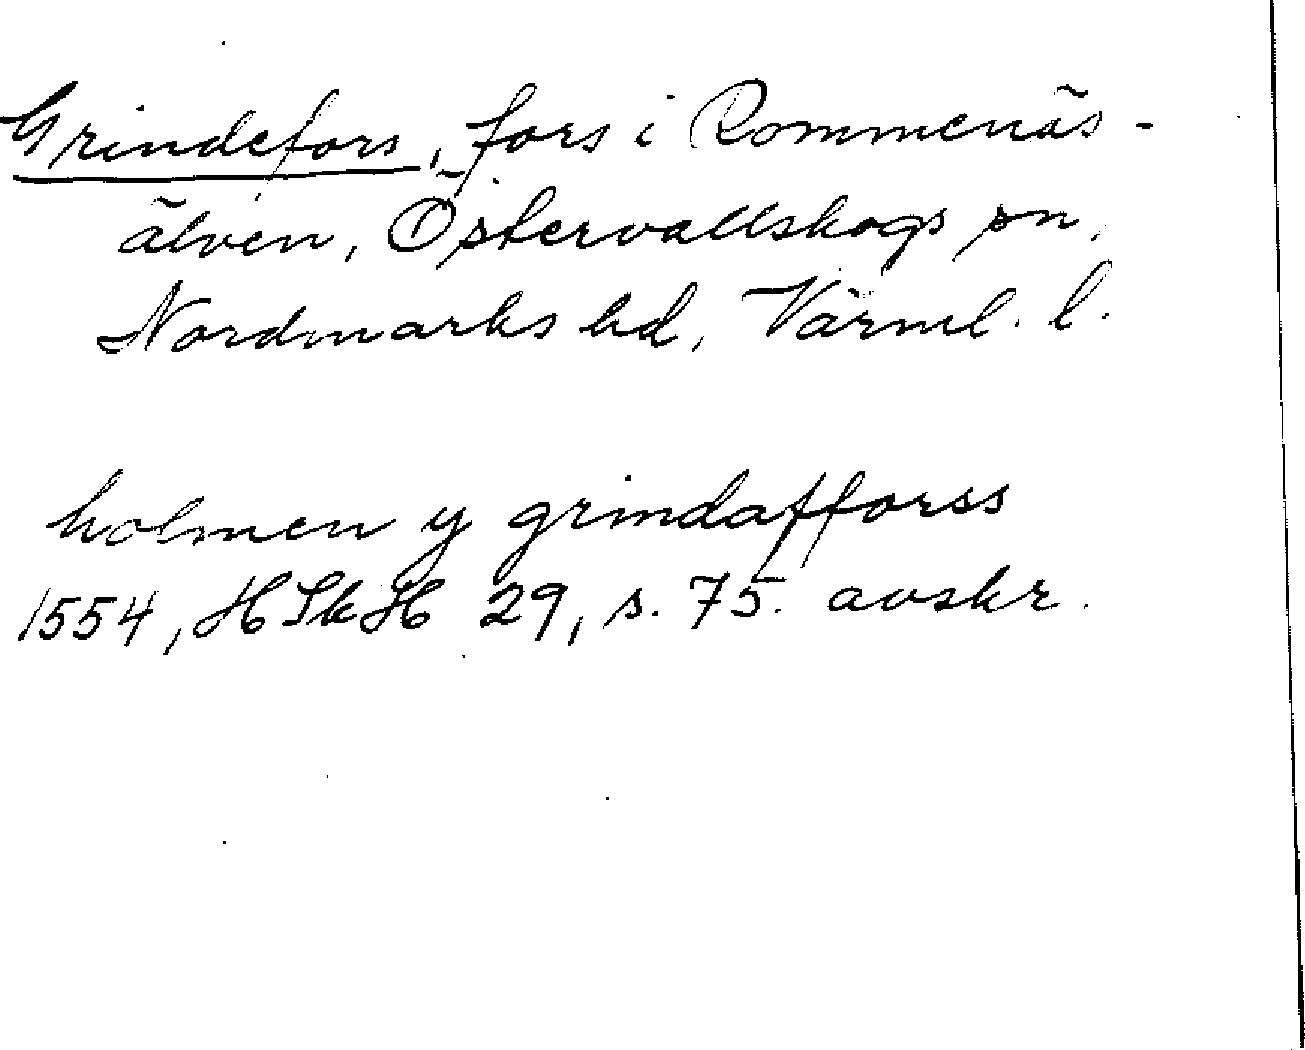 Grindefors, fors i Rommenäs-
älven, Östervallskogs sn,
Nordmarks hd, Värml. l.
holmen y grindafforss
1554, HSkH 29, s. 75. avskr.